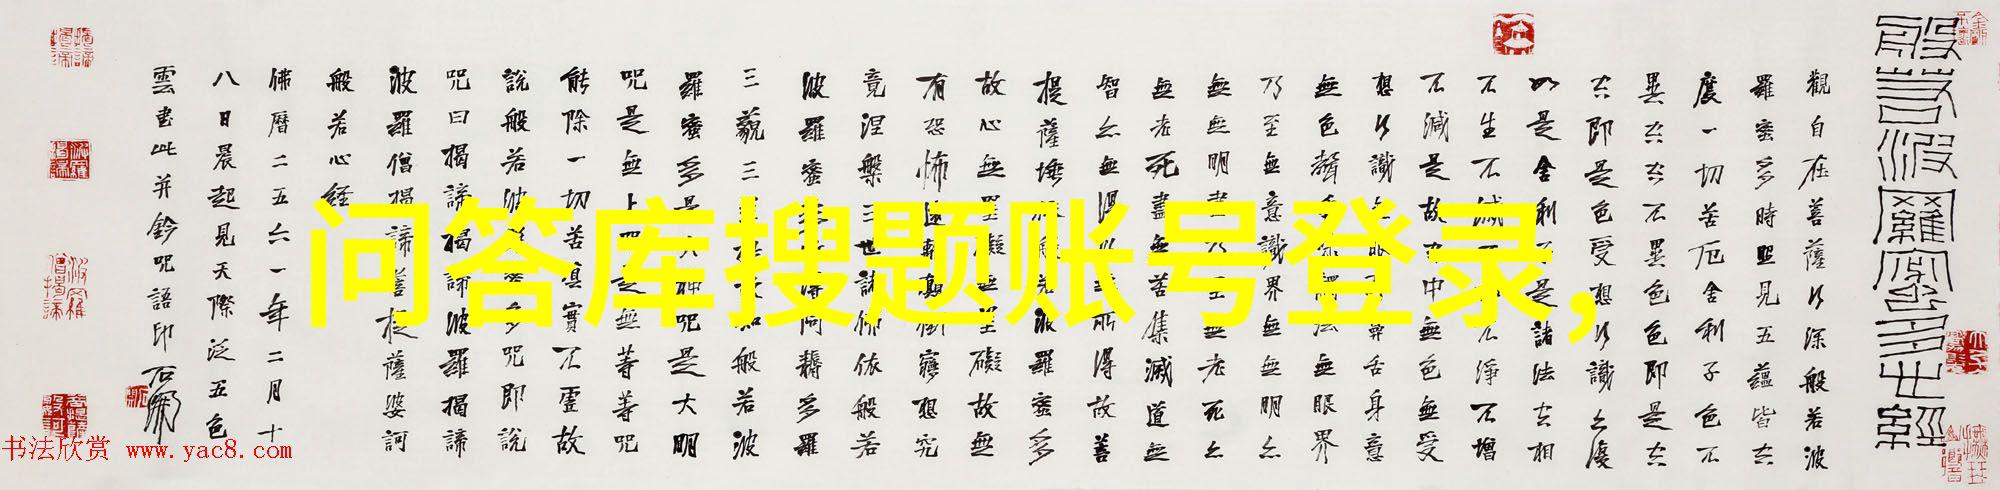 般若波羅蜜多心經
觀自在菩薩行深般若波
羅蜜多時照見五蘊皆空
度一切苦厄舍利子色不
異空空不異色色即是空
空即是色受想行識亦復
如是舍利子是諸法空相
不生不滅不垢不淨不增
不減是故空中無色無受
想行識無眼耳鼻舌身意
無色聲香味觸法無眼界
乃至無意識界無無明亦
無無明盡乃至無老死亦
無老死盡無苦集滅道無
智亦無得以無所得故菩
提薩埵依般若波羅蜜多
故心無罣礙無罣礙故無
有恐怖遠離顛倒夢想究
竟涅槃三世諸佛依般若
波羅蜜多故得阿耨多羅
三藐三菩提故知般若波
羅蜜多是大神咒是大明
咒是無上咒是無等等咒
能除一切苦真實不虛故
說般若波羅蜜多咒即說
咒曰揭諦揭諦波羅揭諦
波羅僧揭諦菩提薩婆訶
般若心経
佛曆二五六一年二月十
八日晨起見天際泛五色
雲書此并鈐咒語印
问答库搜题账号登录,
书法欣赏 www.yac8.com